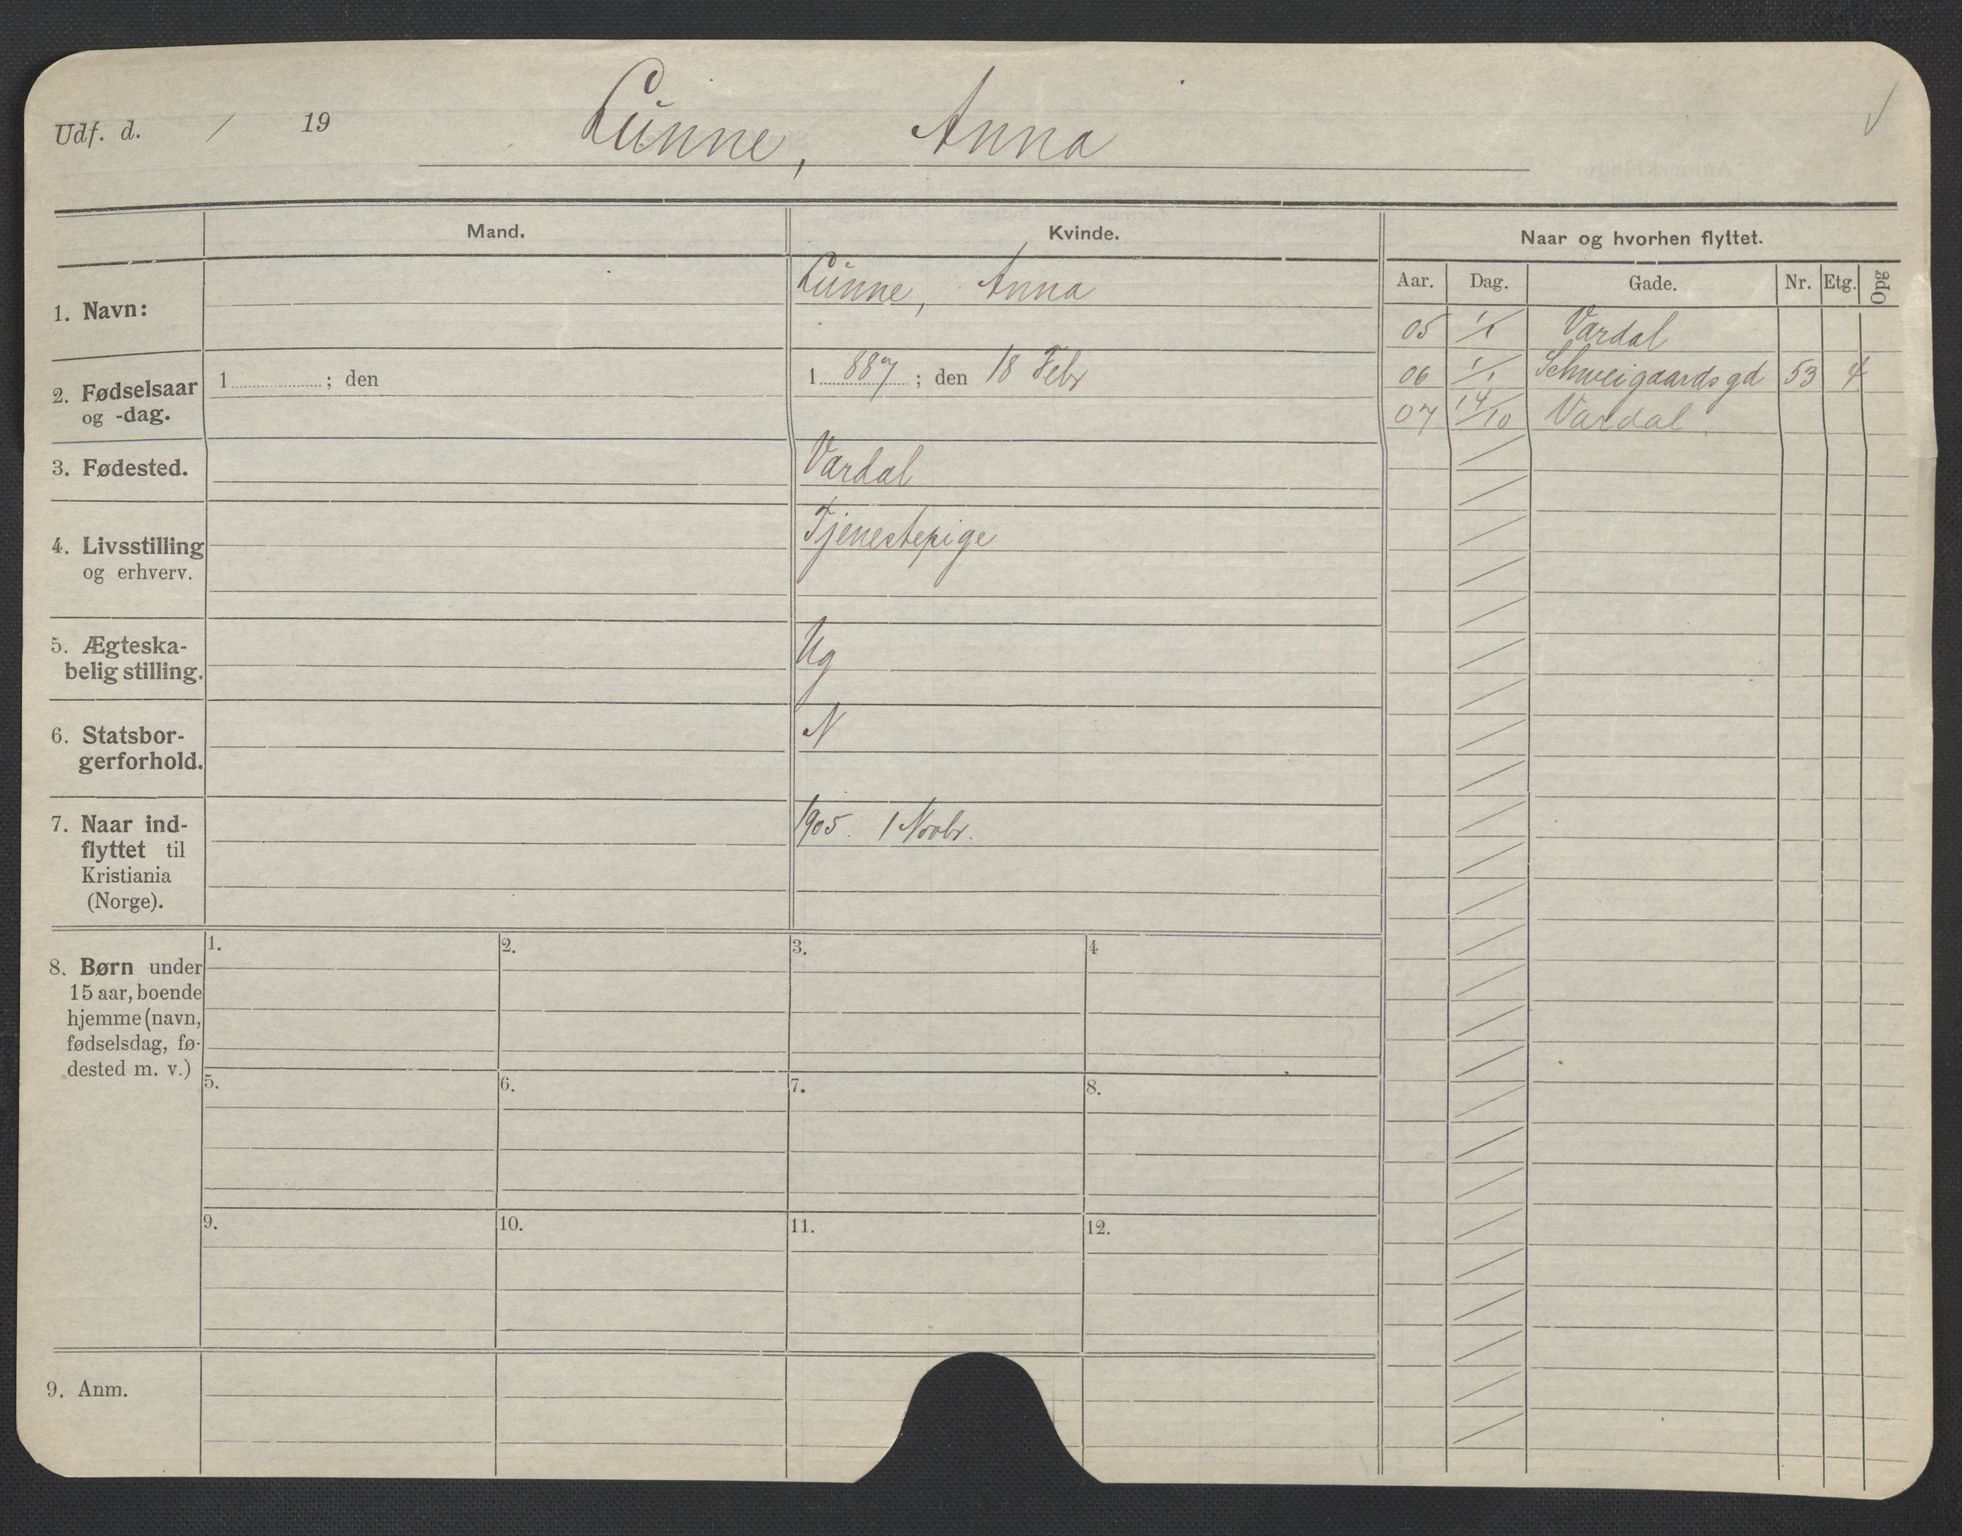 Udf. d. / 19
Lunne, Anna
Mand.
Kvinde.
Naar og hvorhen flyttet.
Aar. Dag. Gade. Nr. Etg. Opg
1. Navn:
Lunne, Anna
05 1/1 Vardal
06 1/1 Schweigaardsgd 53 4
07 14/10 Vardal
2. Fødselsaar
og -dag.
1 ; den
1887; den 18 Febr
3. Fødested.
Vardal
4. Livsstilling
og erhverv.
Tjenestepige
5. Ægteska-
belig stilling.
Ug
6. Statsbor-
gerforhold.
N
7. Naar ind-
flyttet til
Kristiania
(Norge).
1905. 1 Novbr.
8. Børn under
15 aar, boende
hjemme (navn,
fødselsdag, fø-
dested m. v.)
1. 2. 3. 4
5. 6. 7. 8.
9. 10. 11. 12.
9. Anm.